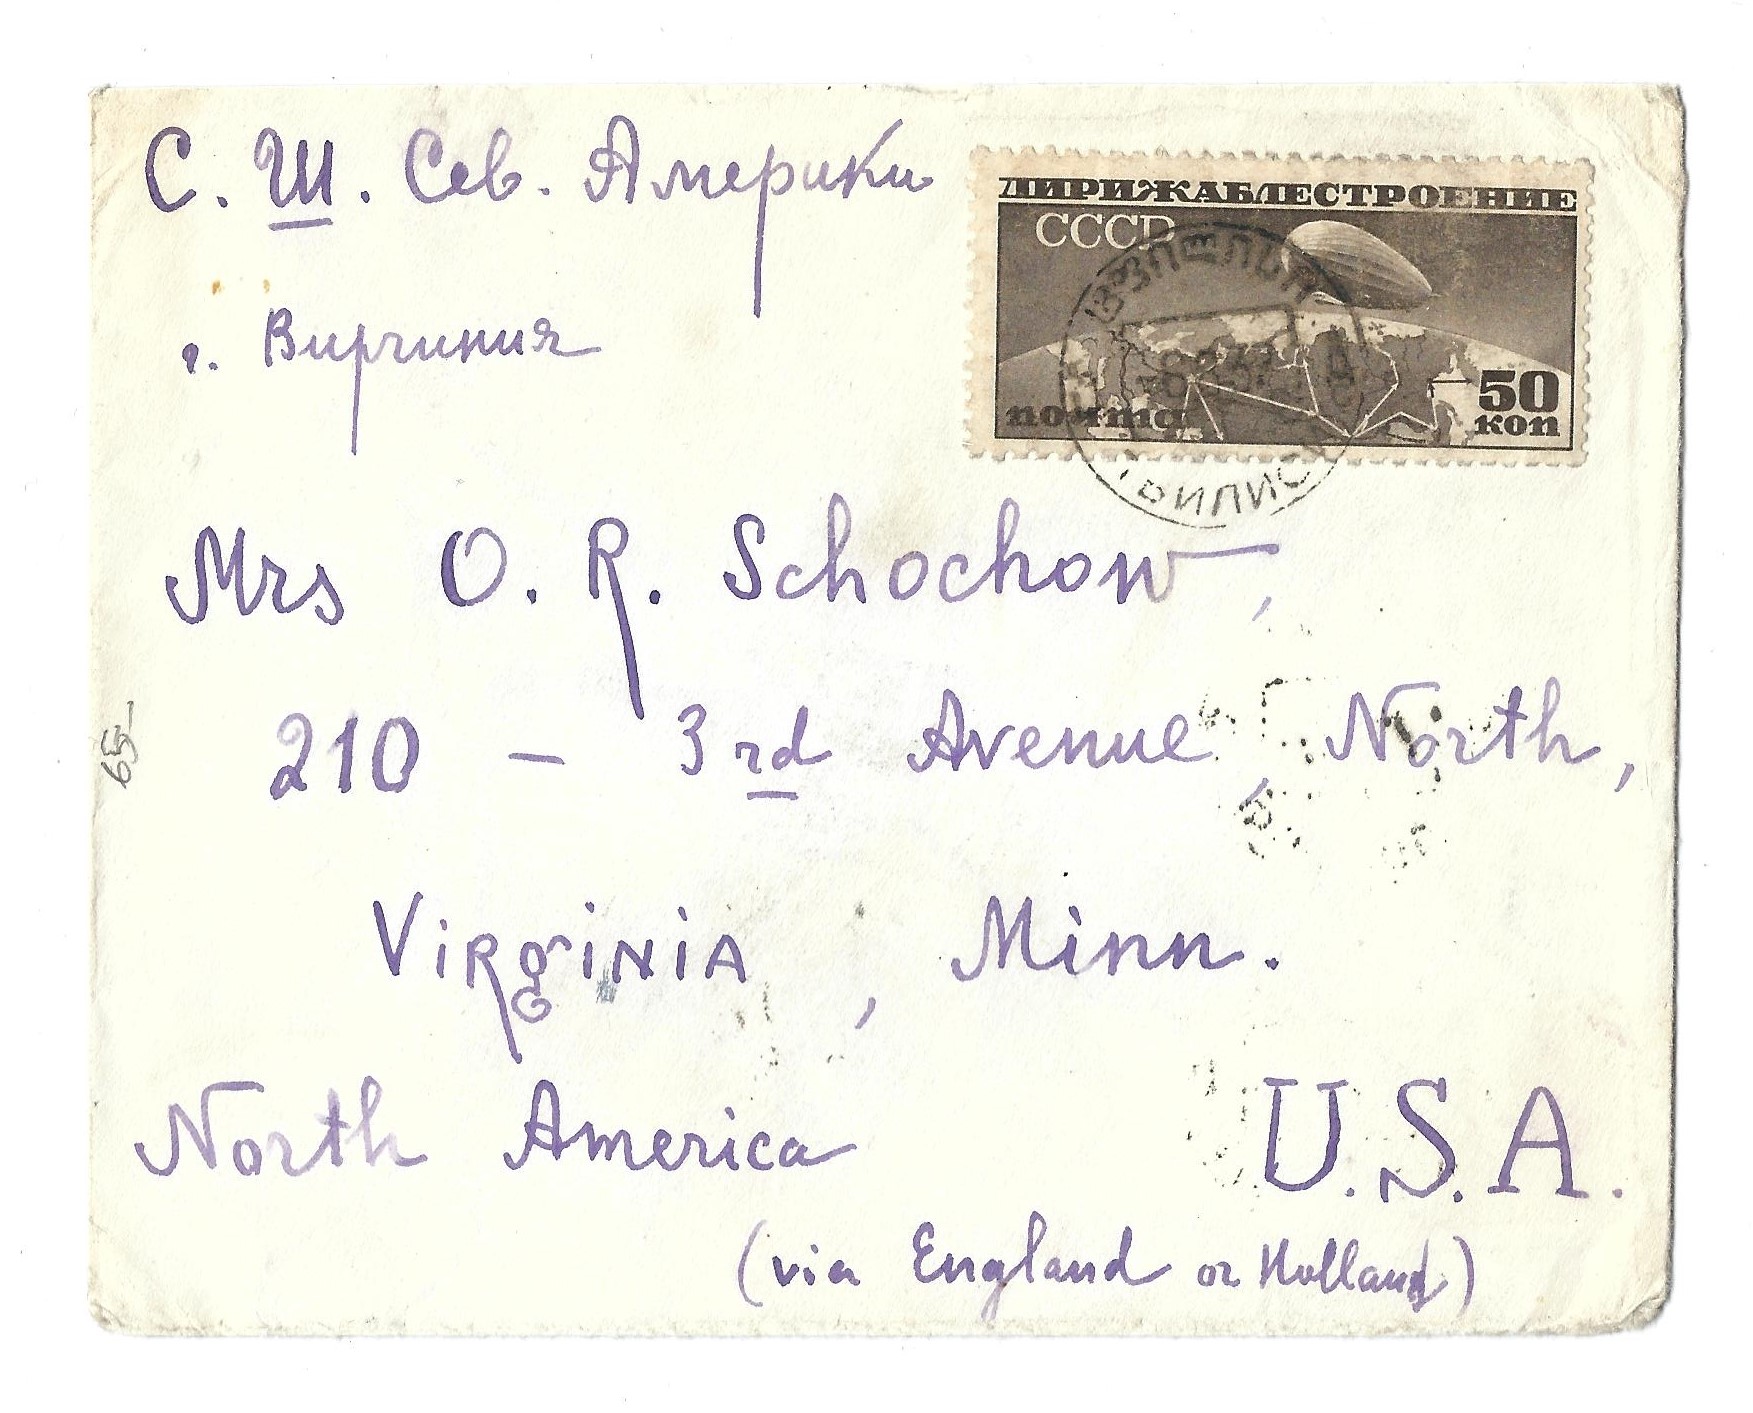 С. Ш. Сев. Америки
г. Вирчиния
ДИРИЖАБЛЕСТРОЕНИЕ
СССР
50
почта
коп
ТБИЛИСИ
Mrs O. R. Schochow,
210 - 3rd Avenue, North,
65-
VIRGINIA, Minn.
North America U.S.A.
(via England or Holland)